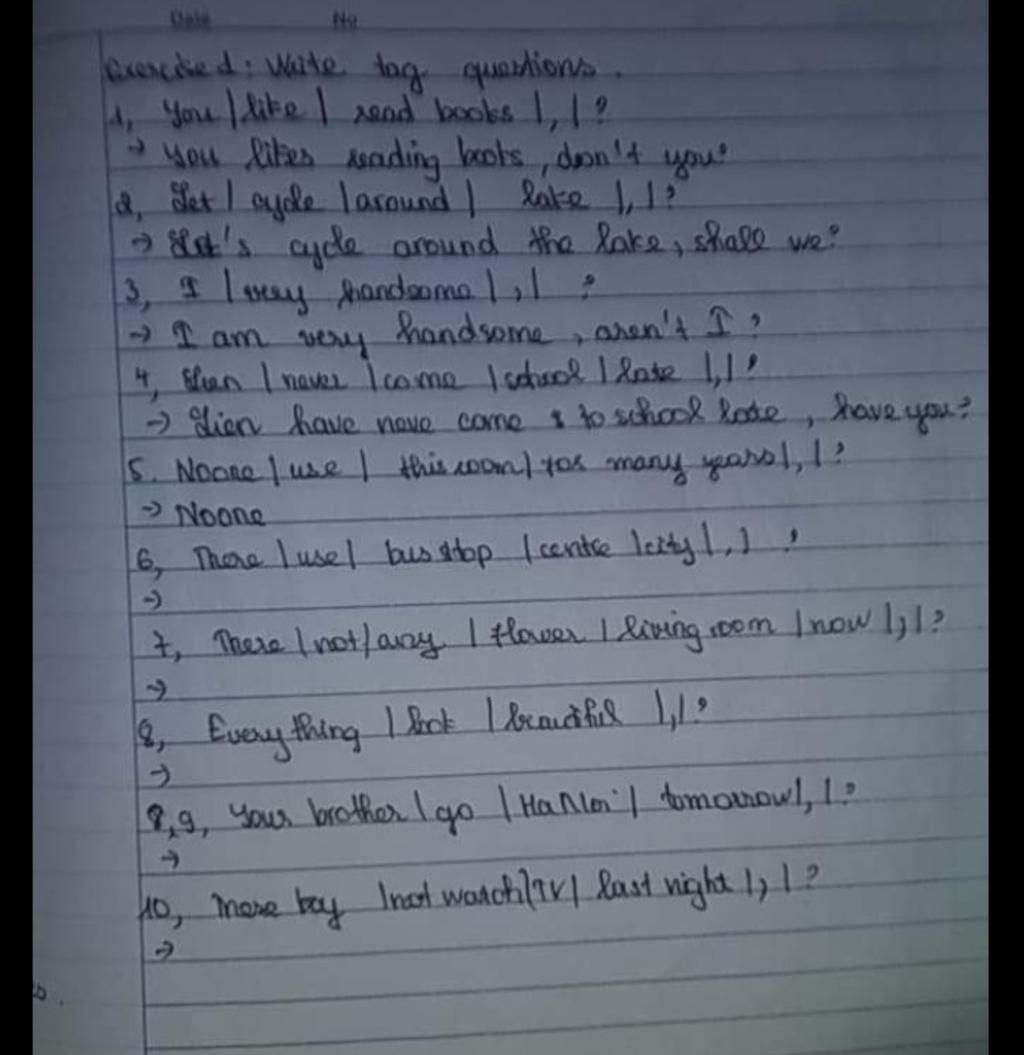 Date No
Exercise 1: Write tag questions.
1, You / like / read books / , / ?
→ You likes reading books, don't you?
2, Let / cycle / around / lake / , / ?
→ Let's cycle around the lake, shall we?
3, I / very handsome / , / ?
→ I am very handsome, aren't I?
4, / never / come / school / late / , / ?
→ have neve come to school late, have you?
5. Noone / use / this room / for many years / , / ?
→ Noone
6, There / use / bus stop / centre / city / , / ?
→
7, There / not / any / flower / living room / now / , / ?
→
8, Everything / look / beautiful / , / ?
→
9, Your brother / go / Ha Noi / tomorrow / , / ?
→
10, boy / not watch / TV / last night / , / ?
→